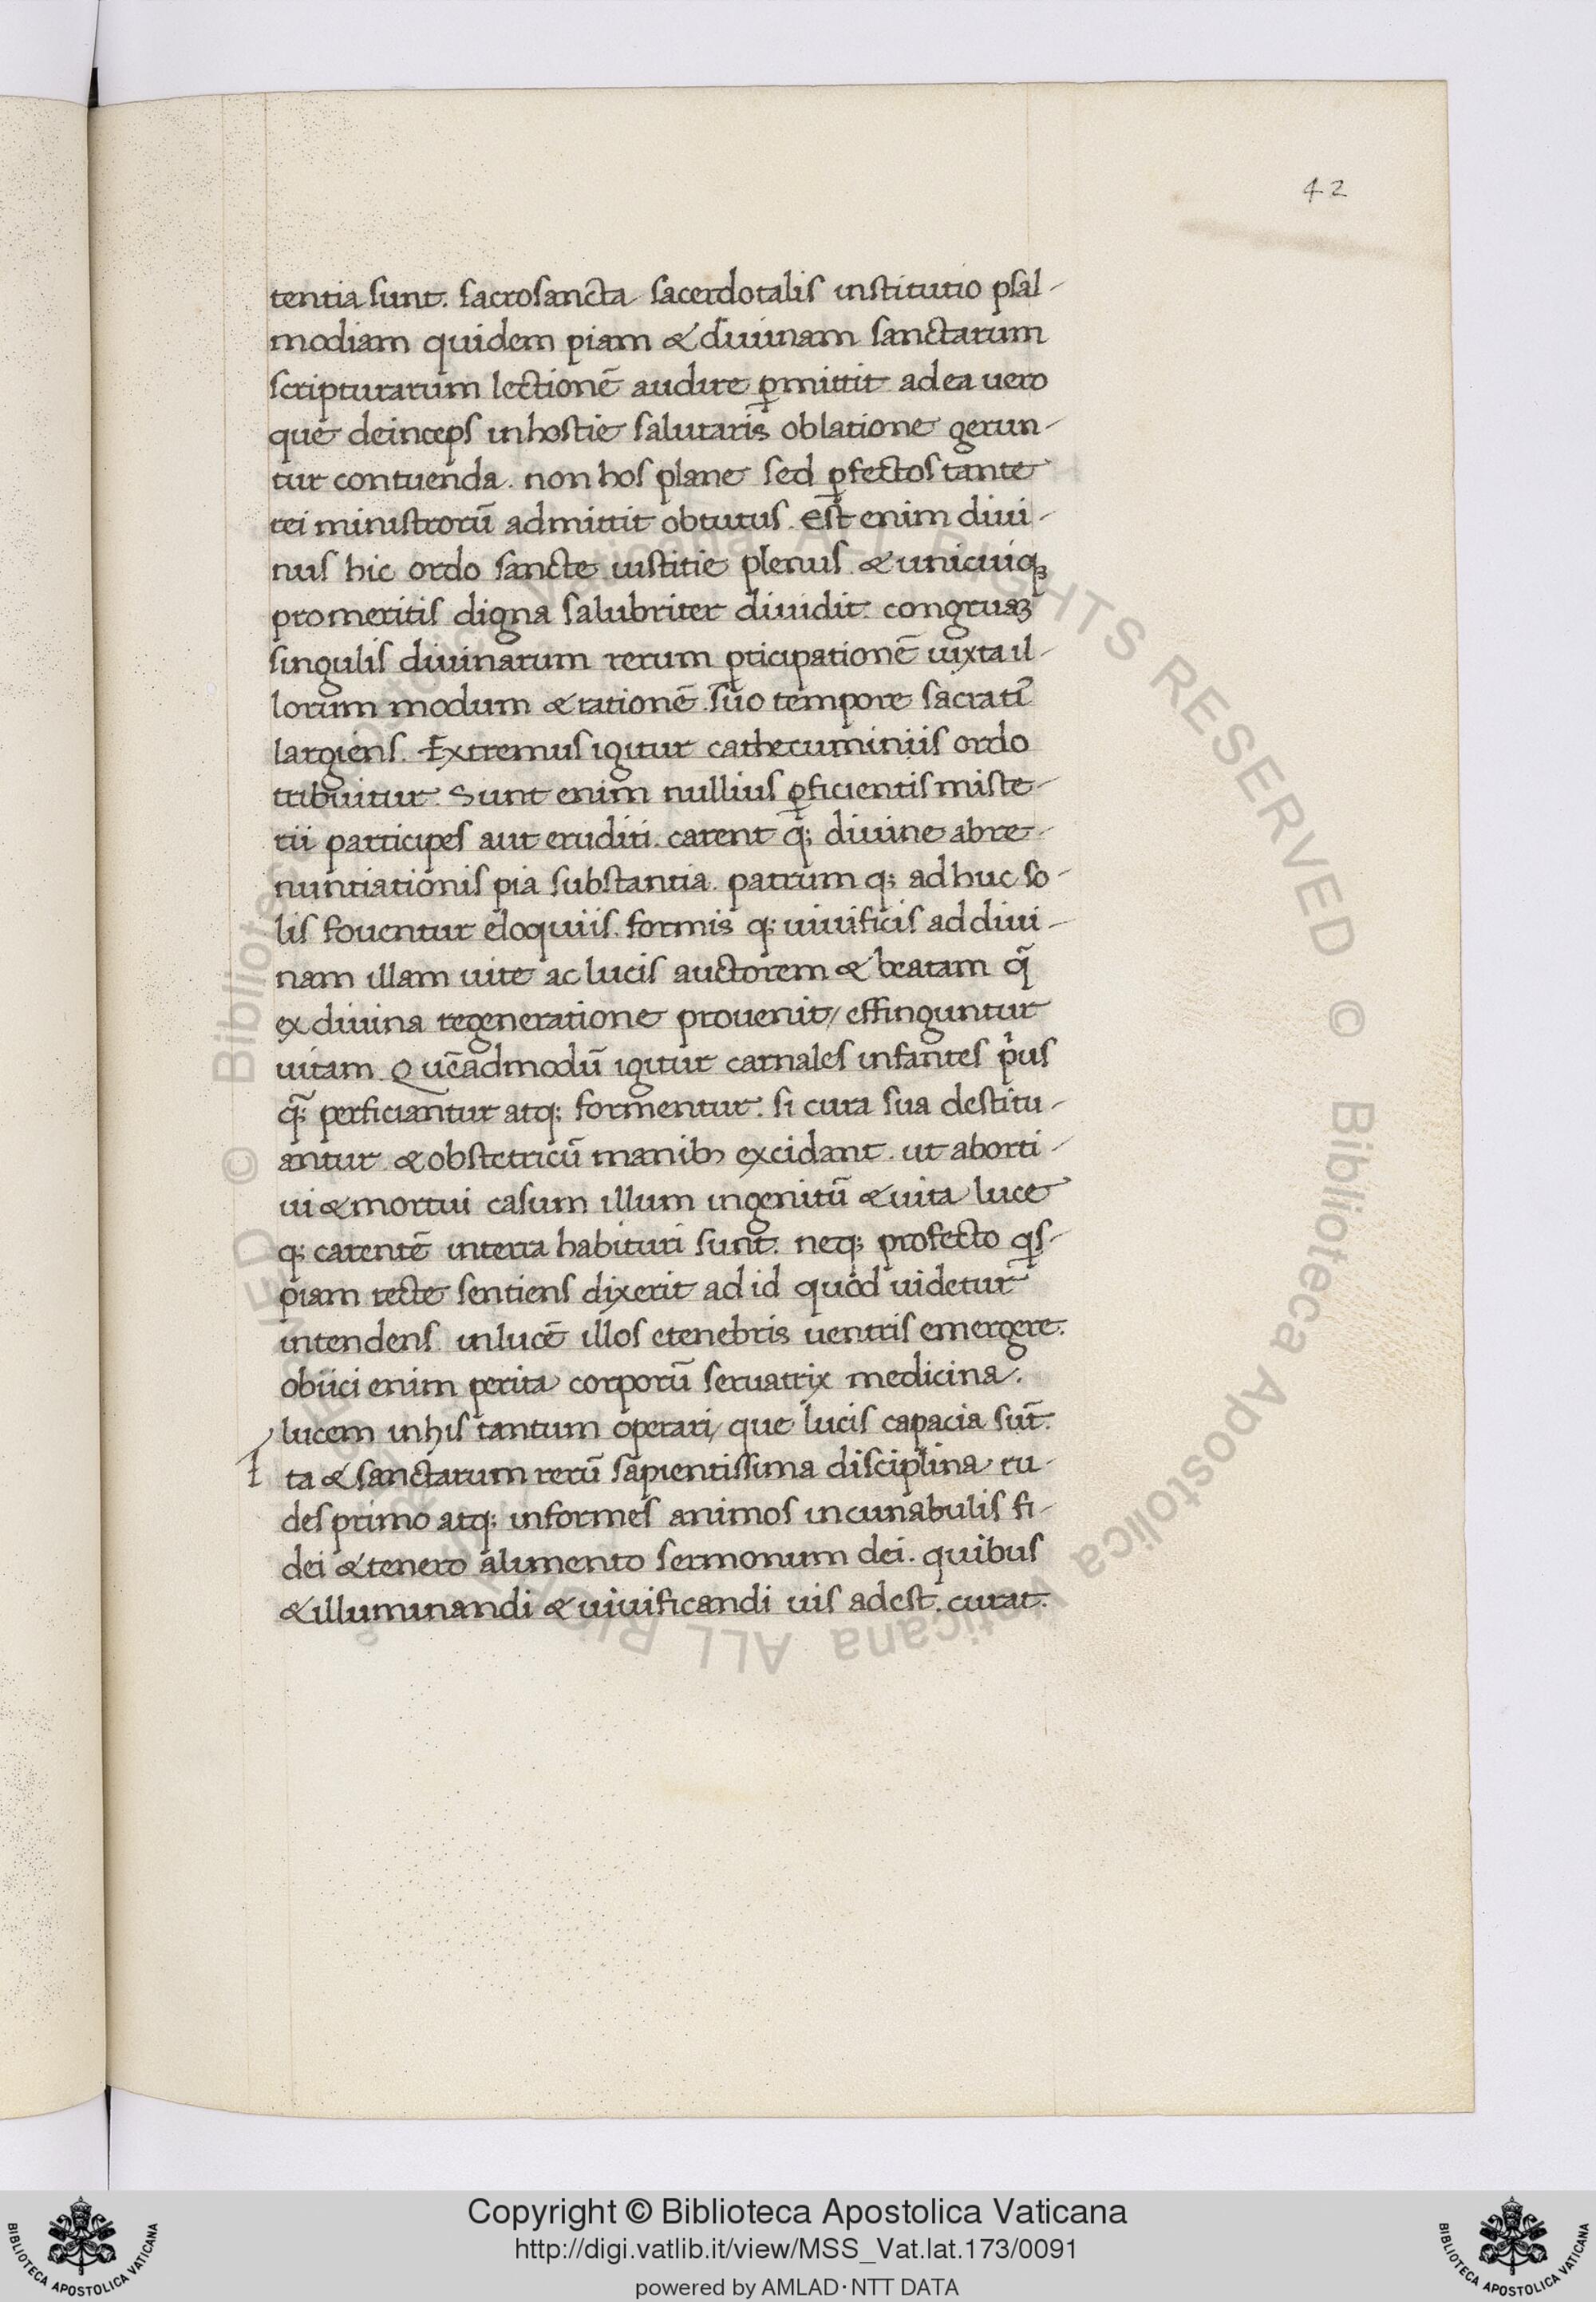 42
tentia sunt. sacrosancta sacerdotalis institutio psal-
modiam quidem piam & diuinam sanctarum
scripturarum lectionē audire ꝑmittit ad ea uero
que deinceps in hostie salutaris oblatione gerun-
tur contuenda. non hos plane sed ꝑfectos tante
rei ministrorū admittit obtutus. Est enim diui-
nus hic ordo sancte iustitie plenus. & unicuiqꝫ
pro meritis digna salubriter diuidit. congruaꝫ
singulis diuinarum rerum ꝑticipationē iuxta il-
lorum modum & rationē. suo tempore sacratī
largiens. Extremus igitur cathecuminiis ordo
tribuitur. Sunt enim nullius ꝑficientis miste-
rii participes aut eruditi. carent q̃; diuine abre-
nuntiationis pia substantia. patrum q; adhuc so-
lis fouentur eloquiis. formis q; uiuificis ad diui-
nam illam uite ac lucis auctorem & beatam q̃
ex diuina regeneratione prouenit/ effinguntur
uitam. Quēadmodū igitur carnales infantes p̍us
q̃; perficiantur atq; formentur. si cura sua destitu-
antur & obstetricū manibꝫ excidant. ut aborti-
ui & mortui casum illum ingenitū & uita luce
q; carentē in terra habituri sunt. neq; profecto qͥs-
piam recte sentiens dixerit ad id quod uidetur
intendens. in lucē illos e tenebris uentris emergere.
obiici enim perita corporū seruatrix medicina.
lucem in his tantum operari/ que lucis capacia sūt.
Ita & sanctarum rerū sapientissima disciplina ru-
des primo atq; informes animos incunabulis fi-
dei & tenero alimento sermonum dei. quibus
& illuminandi & uiuificandi uis adest. curat.
Copyright © Biblioteca Apostolica Vaticana
http://digi.vatlib.it/view/MSS_Vat.lat.173/0091
powered by AMLAD·NTT DATA
BIBLIOTECA APOSTOLICA VATICANA
BIBLIOTECA APOSTOLICA VATICANA